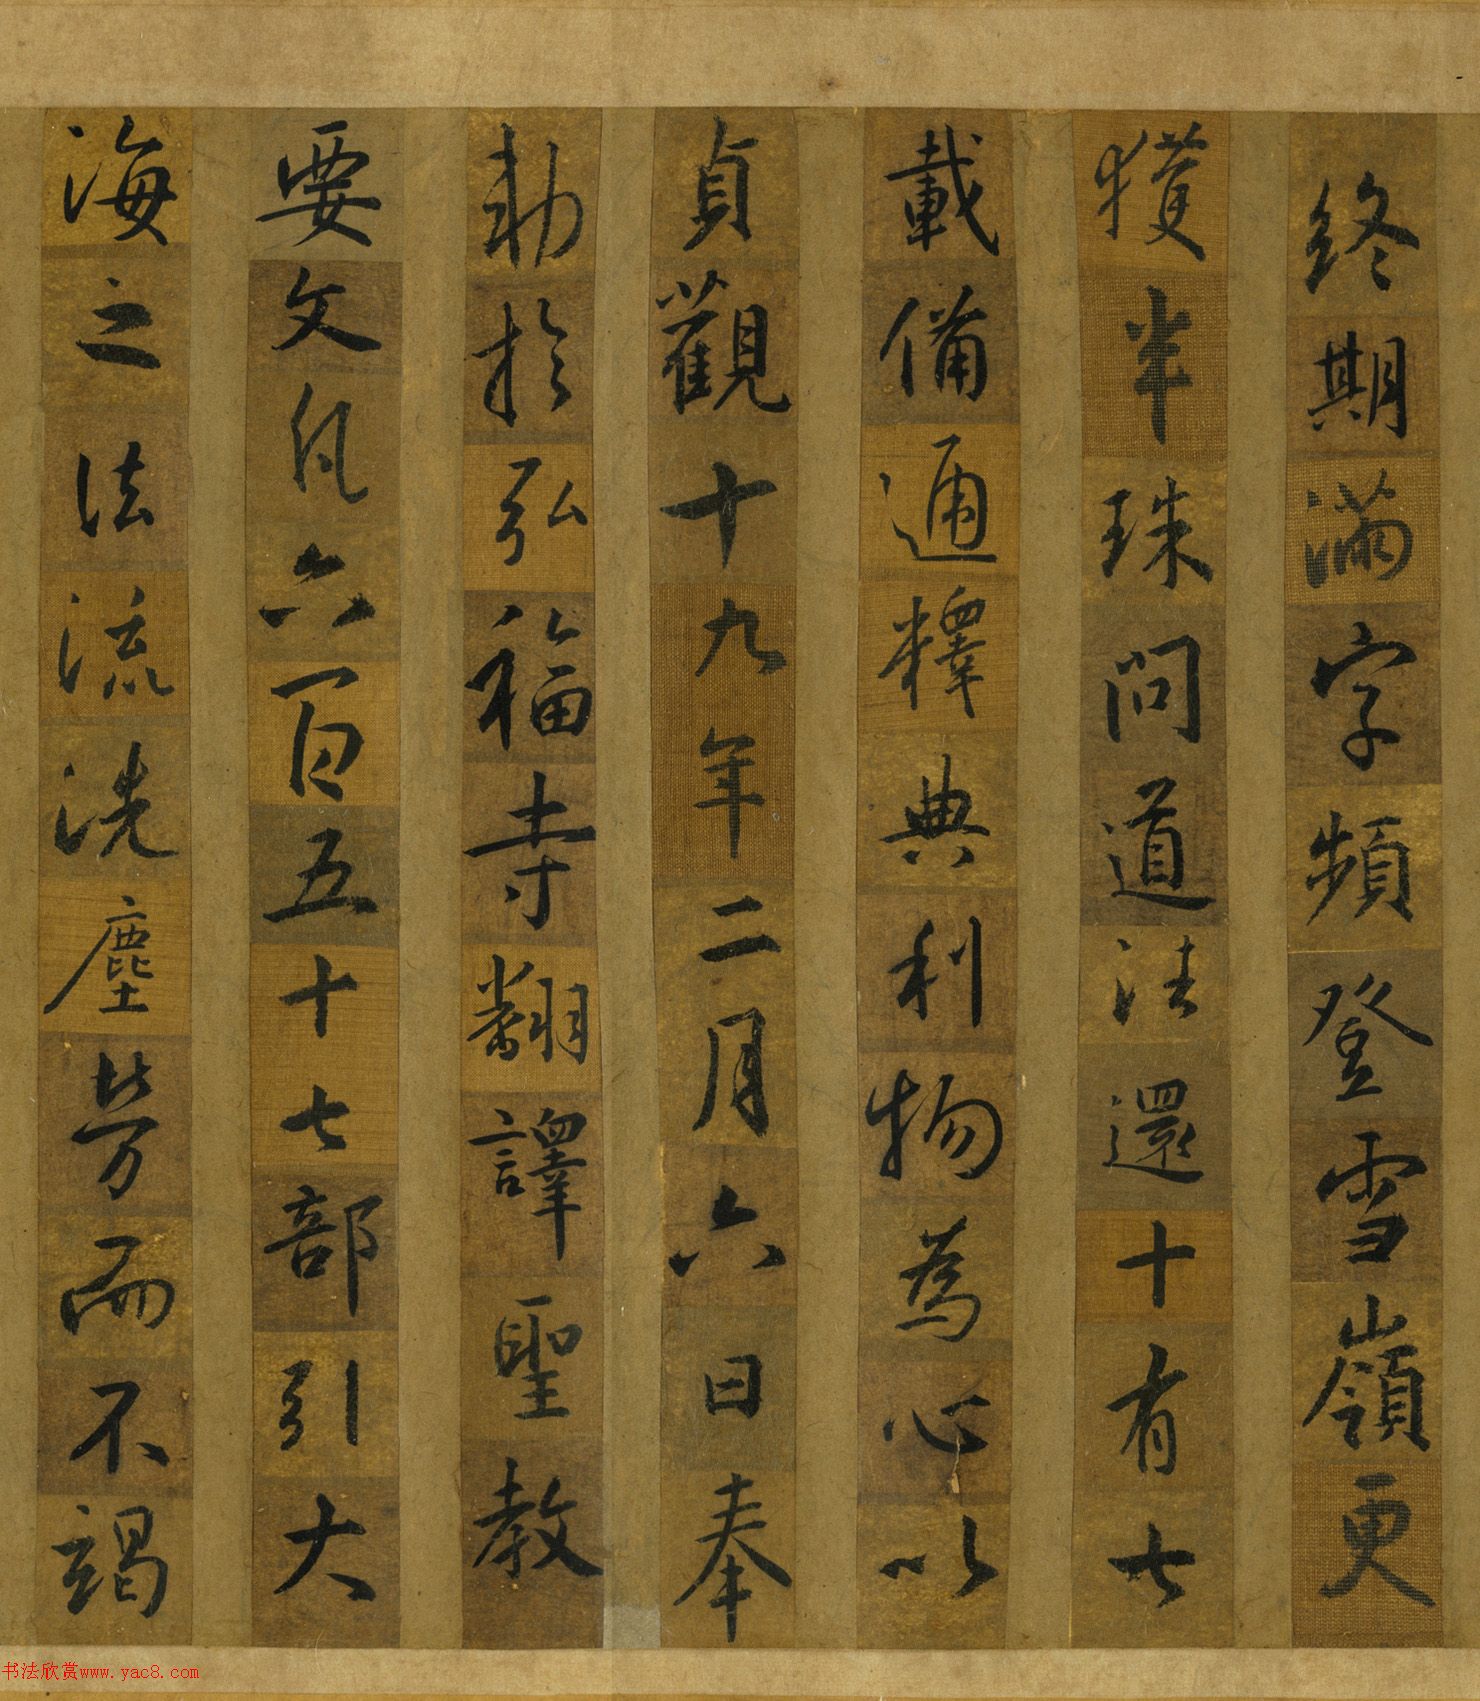 終期滿字頻登雪嶺更
獲半珠問道法還十有七
載備通釋典利物為心以
貞觀十九年二月六日奉
勅於弘福寺翻譯聖教
要文凡六百五十七部引大
海之法流洗塵勞而不竭
书法欣赏www.yac8.com